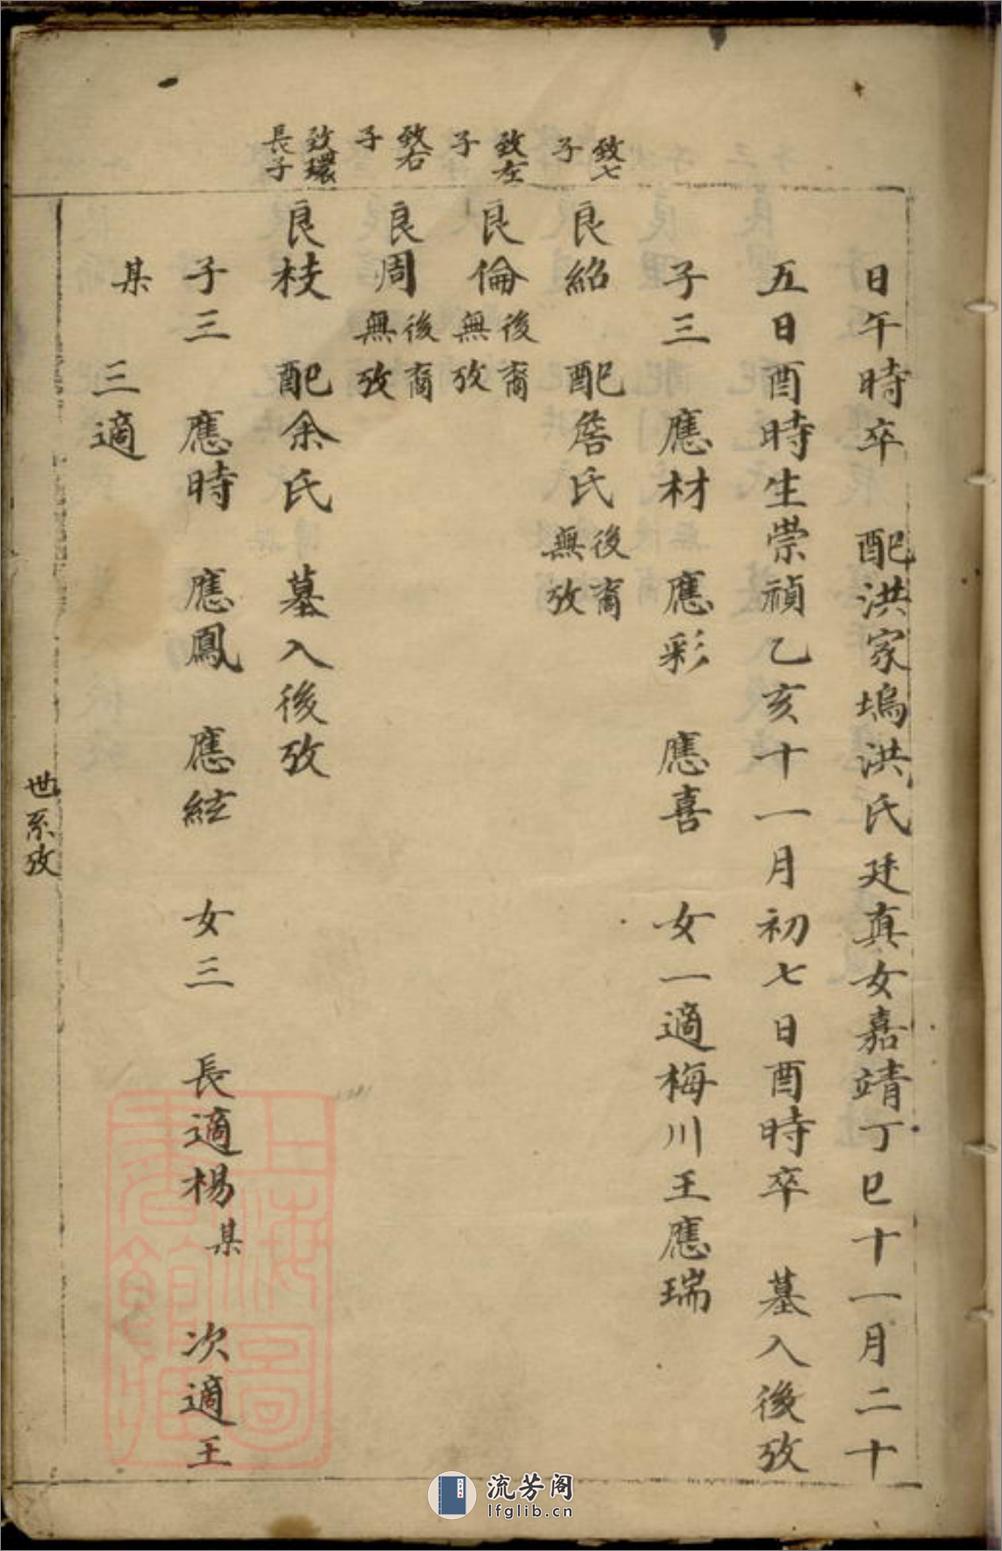 日午時卒　配洪家塢洪氏廷真女嘉靖丁巳十一月二十
五日酉時生崇禎乙亥十一月初七日酉時卒　墓入後攷
子三　應材　應彩　應喜　女一適梅川王應瑞
致七子
良紹　配詹氏後裔無攷
致左子
良倫後裔無攷
致右子
良周後裔無攷
致環長子
良枝　配余氏　墓入後攷
子三　應時　應鳳　應絃　女三　長適楊某　次適王
某　三適
世系攷
上海圖書館藏
流芳阁
lfglib.cn